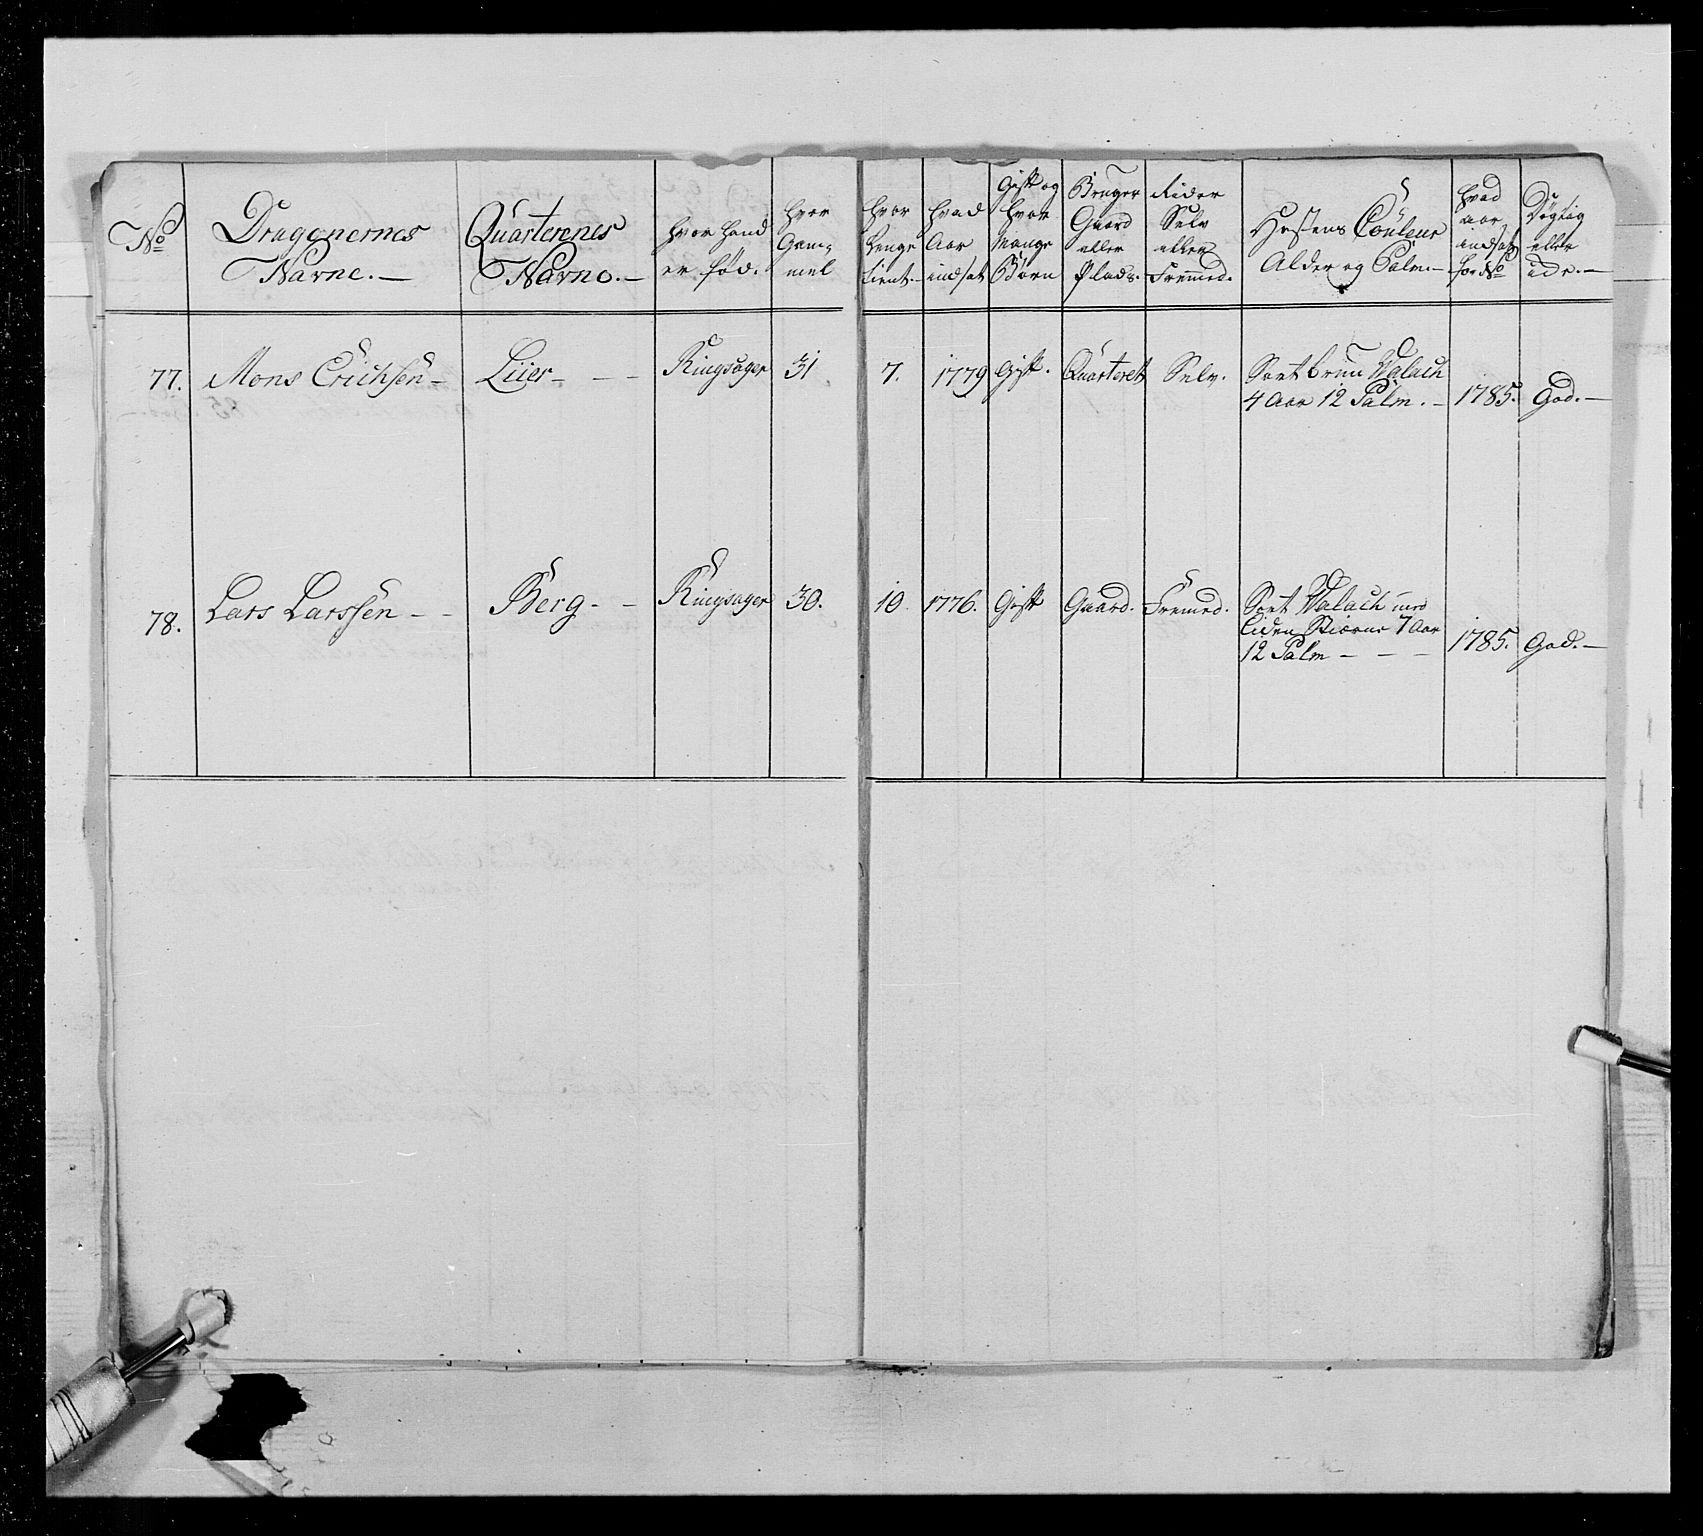 No
Dragonernes
Navne.—
Quarterenes
Navne.—
hvor hand
er fød.
hvor
Gam-
mel
hvor
længe
tient.—
hvad
Aar
indsat
Gift og
hvor
mange
Børn
Bruger
Gaard
eller
Plads.
Rider
Selv
eller
Fremed.
Hestens Couleur
Alder og Palm.—
hvad
aar
indsat
for No
Dygtig
eller
ude.—
77. Mons Erichsen— Liier— — — Ringsager 31 7. 1779 Gift. Quarteret Selv. Sort brun Valach
4 Aar 12 Palm.— 1785. God.—
78. Lars Larssen — — Berg— — Ringsager 30. 10. 1776. Gift Gaard. Fremed. Sort Valach med
liden Stierne 7 Aar
12 Palm — — — 1785. God.—